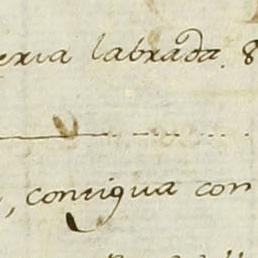 eria labrada. 8
, contigua con